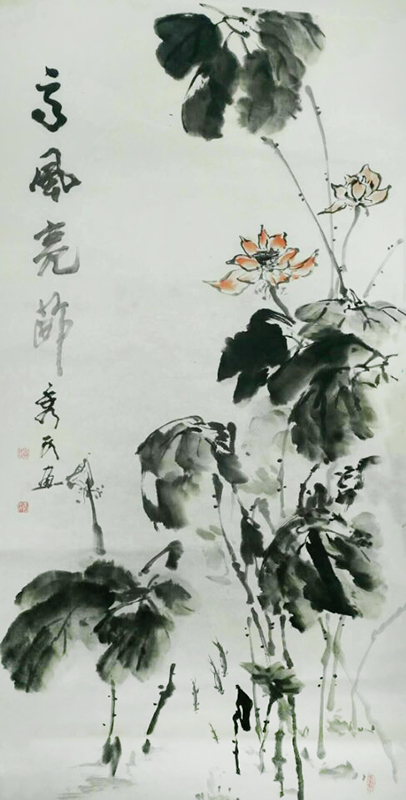 高風亮節
秀民画